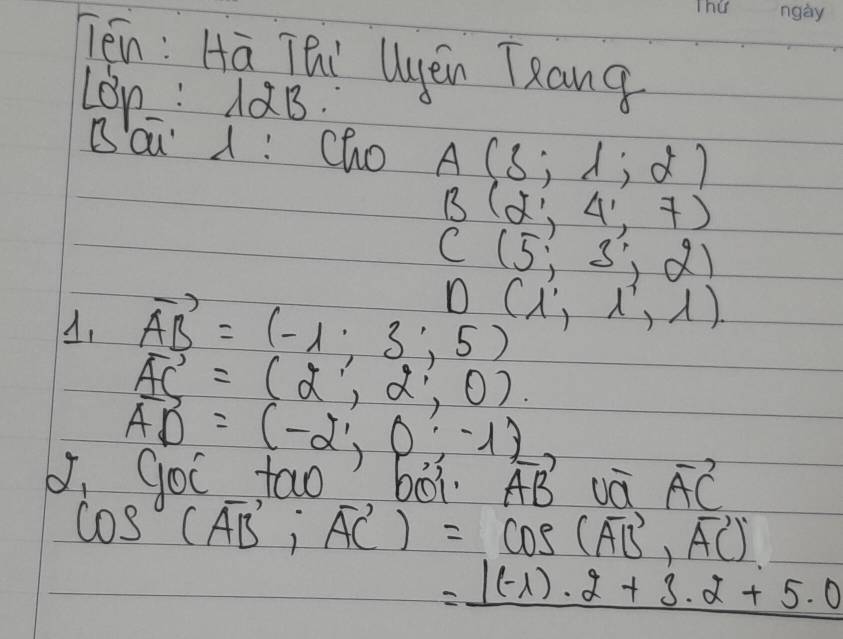 Thứ ngày
Tên: Hà Thị Uyên Trang
Lớp: 12B.
Bài 1: Cho A (3; 1; 2)
B (2; 4; 7)
C (5; 3; 2)
D (1; 1; 1).
1, AB = (-1; 3; 5)
AC = (2; 2; 0).
AD = (-2; 0; -1)
2, Góc tạo bởi AB và AC
cos (AB; AC) = cos (AB, AC)
= |(-1).2 + 3.2 + 5.0